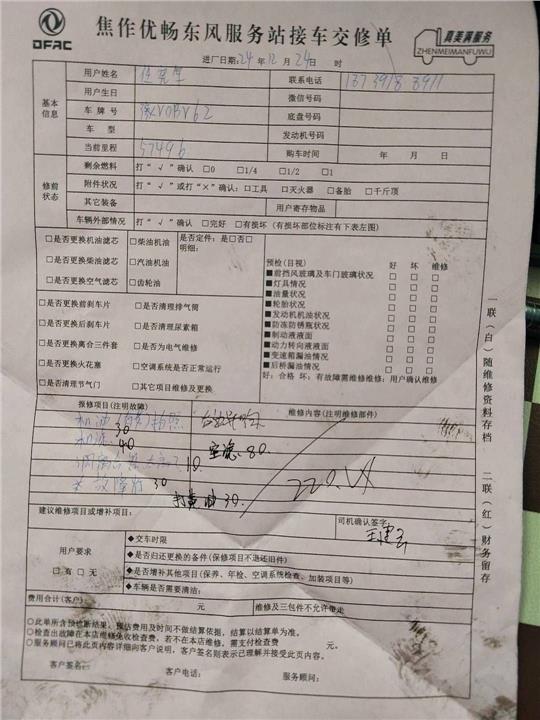 DFAC
焦作优畅东风服务站接车交修单
真美满服务
ZHENMEIMANFUWU
进厂日期:24 年 12 月 24 日 时
基本信息
用户姓名
联系电话
用户生日
微信号码
车牌号
底盘号码
车 型
发动机号码
当前里程 57496
购车时间 年 月 日
修前状态
剩余燃料 打“√”确认 □0 □1/4 □1/2 □1
附件状况 打“√”或打“×”确认：□工具 □灭火器 □备胎 □千斤顶
其它装备
用户寄存物品
车辆外部情况 打“√”确认 □完好 □有损坏（有损坏部位标注有下表左图）
□是否更换机油滤芯 □柴油机油 是否定件：是□否□
明细：
□是否更换柴油滤芯 □汽油机油
□是否更换空气滤芯 □齿轮油
预检(目视) 好 坏 维修
■前挡风玻璃及车门玻璃状况 □ □ □
■灯具情况 □ □ □
■油量状况 □ □ □
■轮胎状况 □ □ □
■发动机机油状况 □ □ □
■防冻防锈瓶状况 □ □ □
■制动液液面 □ □ □
■动力转向液液面 □ □ □
■变速箱漏油情况 □ □ □
■后桥漏油情况 □ □ □
好：合格 坏：有故障需维修维修：用户确认维修
□是否更换前刹车片 □是否清理排气筒
□是否更换后刹车片 □是否清理尿素箱
□是否更换离合三件套 □是否为电气维修
□是否更换火花塞 □空调系统是否正常运行
□是否清理节气门 □其它项目维修及更换
报修项目(注明故障) 维修内容(注明维修部件)
30
机滤 40 空滤 80.
10.
30 打黄油 30.
220.
建议维修项目或增补项目：
司机确认签字：
用户要求
□有 □无
◆交车时限
◆是否归还更换的备件(保修项目不退还旧件)
◆是否增补其他项目(保养、年检、空调系统检查、加装项目等)
◆车辆是否需要清洁：
费用合计(客户) 元 维修及三包件不允许带走
○此单所含预诊断结果、预估费用及时间不做结算依据，结算以结算单为准。
○检查出故障在本店维修免收检查费，若不在本店维修，需支付检查费 元。
○服务顾问已将此页内容详细向客户说明，客户签名则表示已理解并接受此页内容。
客户签名： 客户电话： 服务顾问：
一联（白）随维修资料存档
二联（红）财务留存